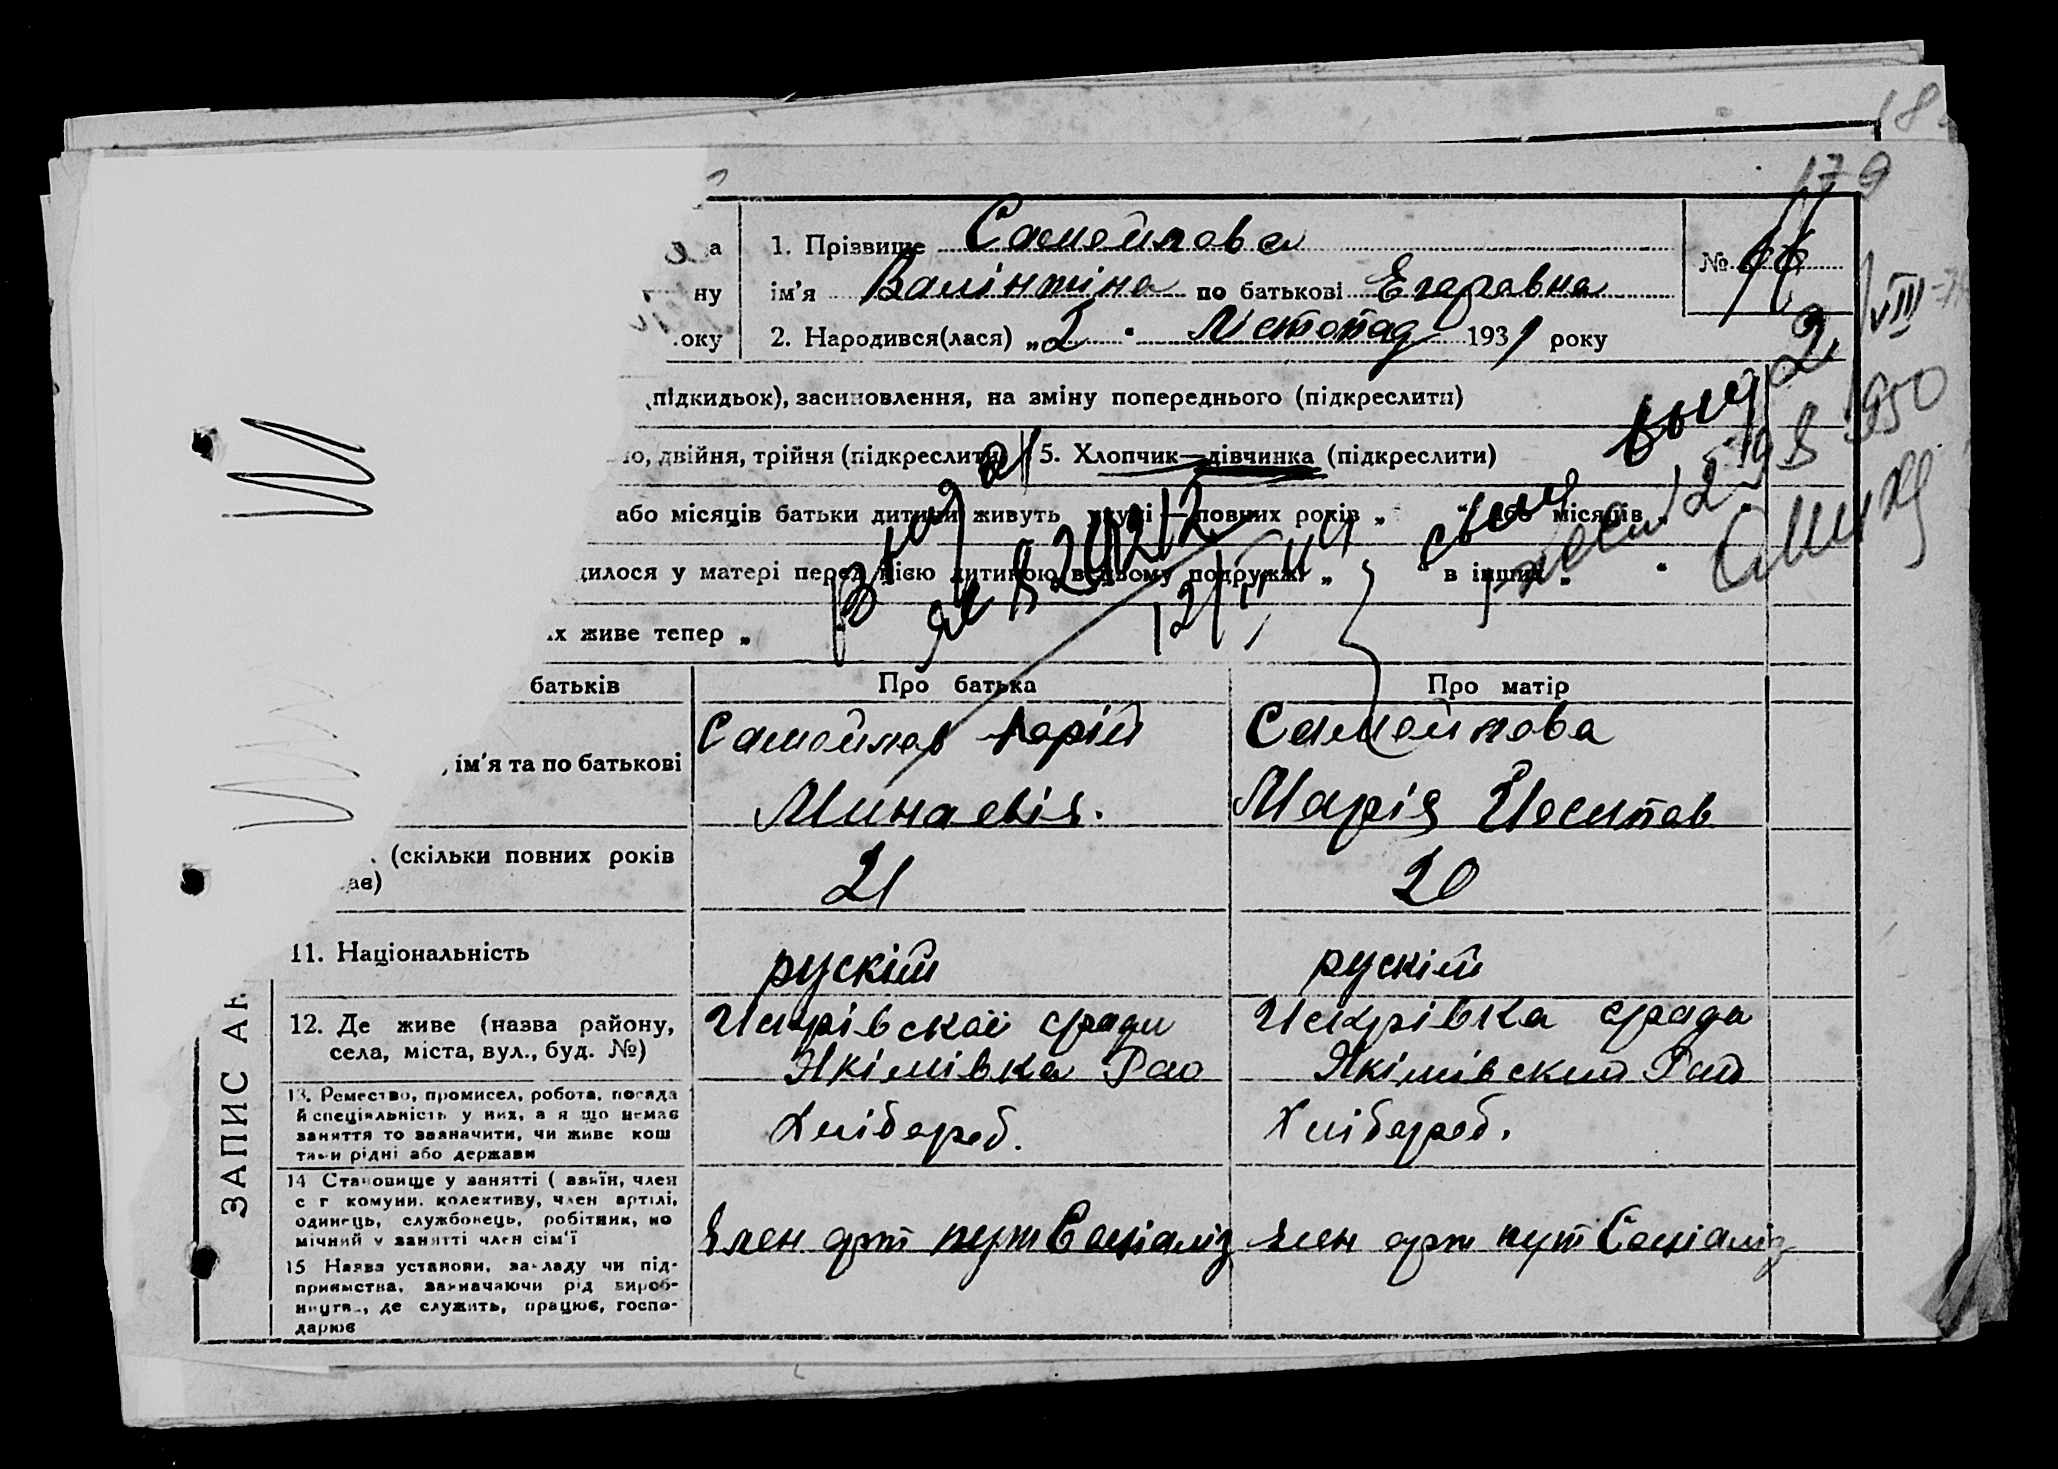 179
1. Прізвище Самойлова
№ 66
ім'я Валінтіна по батькові Егаравна
2. Народився(лася) „2" Лістопад 1931 року
а
ну
оку
підкидьок), засиновлення, на зміну попереднього (підкреслити)
двійня, трійня (підкреслити) 5. Хлопчик—дівчинка (підкреслити)
або місяців батьки дитини живуть вкупі — повних років „ “ або місяців „ “
илося у матері перед цією дитиною в цьому подружжі „ “ в інших „ “
х живе тепер „
батьків Про батька Про матір
, ім'я та по батькові
Самойлов
Минаевіч.
Самойлова
Марія Йосипов
(скільки повних років
ав)
21 20
11. Національність рускій рускій
12. Де живе (назва району,
села, міста, вул., буд. №)
Искрівскаї сради
Якімівка Рао
Искрівка срада
Якімівский Рао
13. Ремество, промисел, робота, посада
й спеціяльність у них, а я що немає
заняття то зазначити, чи живе кош
тами рідні або держави
Хлібороб. Хлібороб.
14 Становище у занятті ( авяїн, член
с г комуни, колективу, член артілі,
одинець, службовець, робітник, по
мічний у занятті член сім'ї
Член арт пут Соціаліз член арт пут Соціаліз
15 Назва установи, закладу чи під-
приємства, зазначаючи рід вироб-
ництв., де служить, працює, госпо-
дарює
ЗАПИС АК